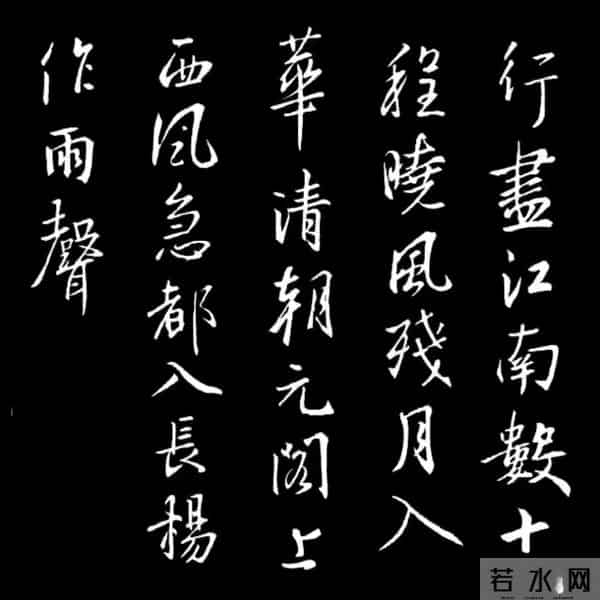 行盡江南數十
程曉風殘月入
華清朝元閣上
西風急都入長楊
作雨聲
若水网